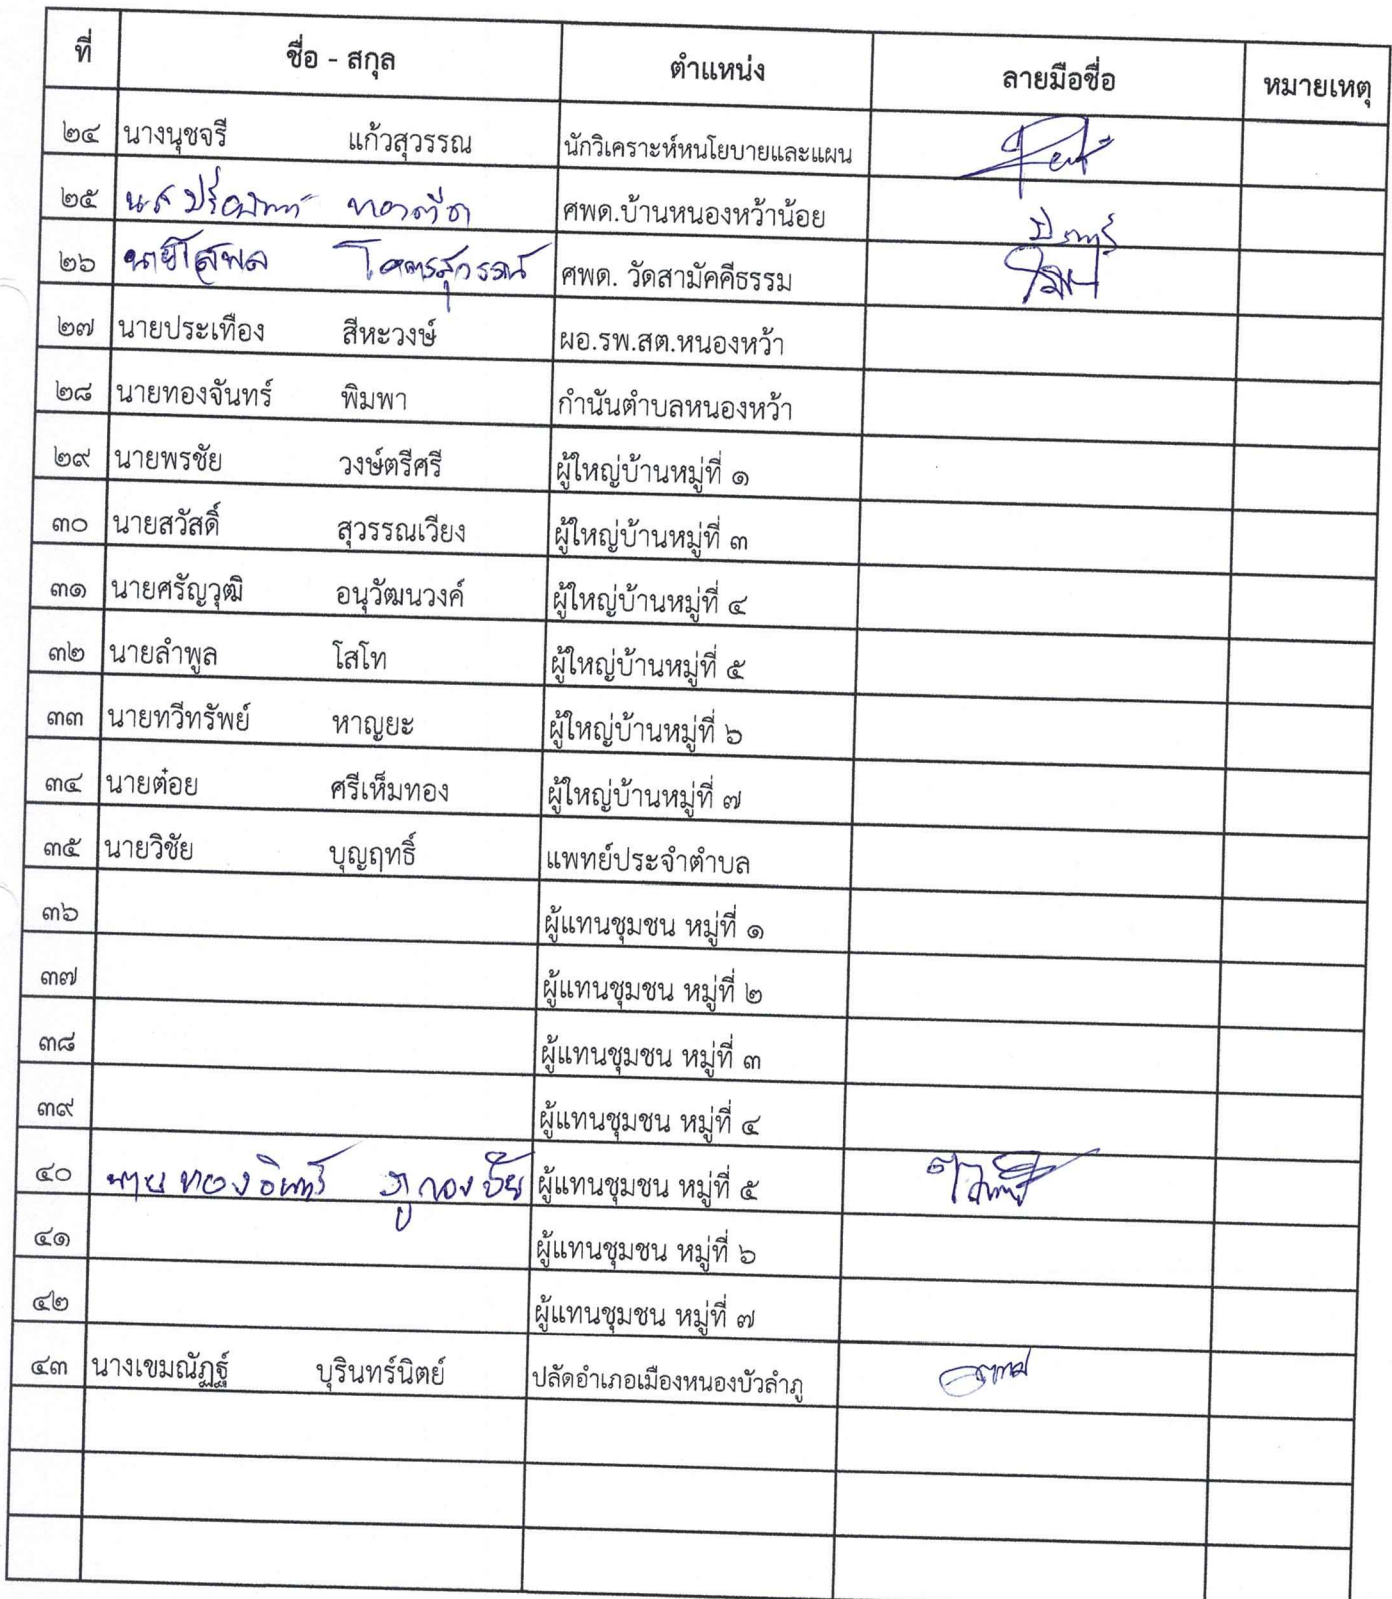 ที่ ชื่อ - สกุล ตำแหน่ง ลายมือชื่อ หมายเหตุ
๒๔ นางนุชจรี แก้วสุวรรณ นักวิเคราะห์หนโยบายและแผน
๒๕ น.ส. ศพด.บ้านหนองหว้าน้อย
๒๖ นายโสพล โคตรสุวรรณ์ ศพด. วัดสามัคคีธรรม
๒๗ นายประเทือง สีหะวงษ์ ผอ.รพ.สต.หนองหว้า
๒๘ นายทองจันทร์ พิมพา กำนันตำบลหนองหว้า
๒๙ นายพรชัย วงษ์ตรีศรี ผู้ใหญ่บ้านหมู่ที่ ๑
๓๐ นายสวัสดิ์ สุวรรณเวียง ผู้ใหญ่บ้านหมู่ที่ ๓
๓๑ นายศรัญวุฒิ อนุวัฒนวงค์ ผู้ใหญ่บ้านหมู่ที่ ๔
๓๒ นายลำพูล โสโท ผู้ใหญ่บ้านหมู่ที่ ๕
๓๓ นายทวีทรัพย์ หาญยะ ผู้ใหญ่บ้านหมู่ที่ ๖
๓๔ นายต๋อย ศรีเห็มทอง ผู้ใหญ่บ้านหมู่ที่ ๗
๓๕ นายวิชัย บุญฤทธิ์ แพทย์ประจำตำบล
๓๖ ผู้แทนชุมชน หมู่ที่ ๑
๓๗ ผู้แทนชุมชน หมู่ที่ ๒
๓๘ ผู้แทนชุมชน หมู่ที่ ๓
๓๙ ผู้แทนชุมชน หมู่ที่ ๔
๔๐ นายทองอินทร์ ภูกองชัย ผู้แทนชุมชน หมู่ที่ ๕
๔๑ ผู้แทนชุมชน หมู่ที่ ๖
๔๒ ผู้แทนชุมชน หมู่ที่ ๗
๔๓ นางเขมณัฏฐ์ บุรินทร์นิตย์ ปลัดอำเภอเมืองหนองบัวลำภู